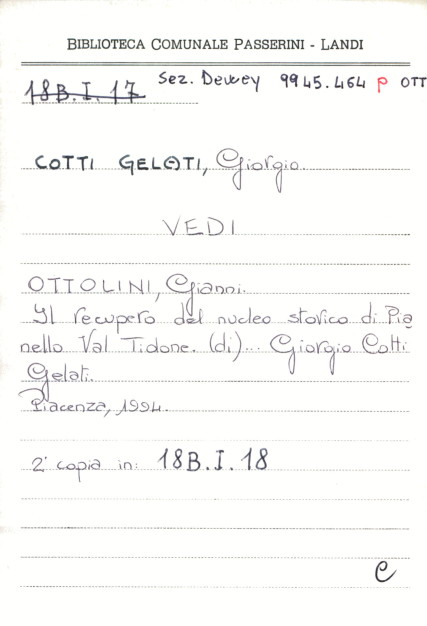 BIBLIOTECA COMUNALE PASSERINI - LANDI
18B.I.17 Sez. Dewey 9945.464 P OTT
COTTI GELATI, Giorgio.
VEDI
OTTOLINI, Gianni.
Il recupero del nucleo storico di Pia
nello Val Tidone. (di)... Giorgio Cotti
Gelati.
Piacenza, 1994.
2ª copia in: 18B.I.18
C